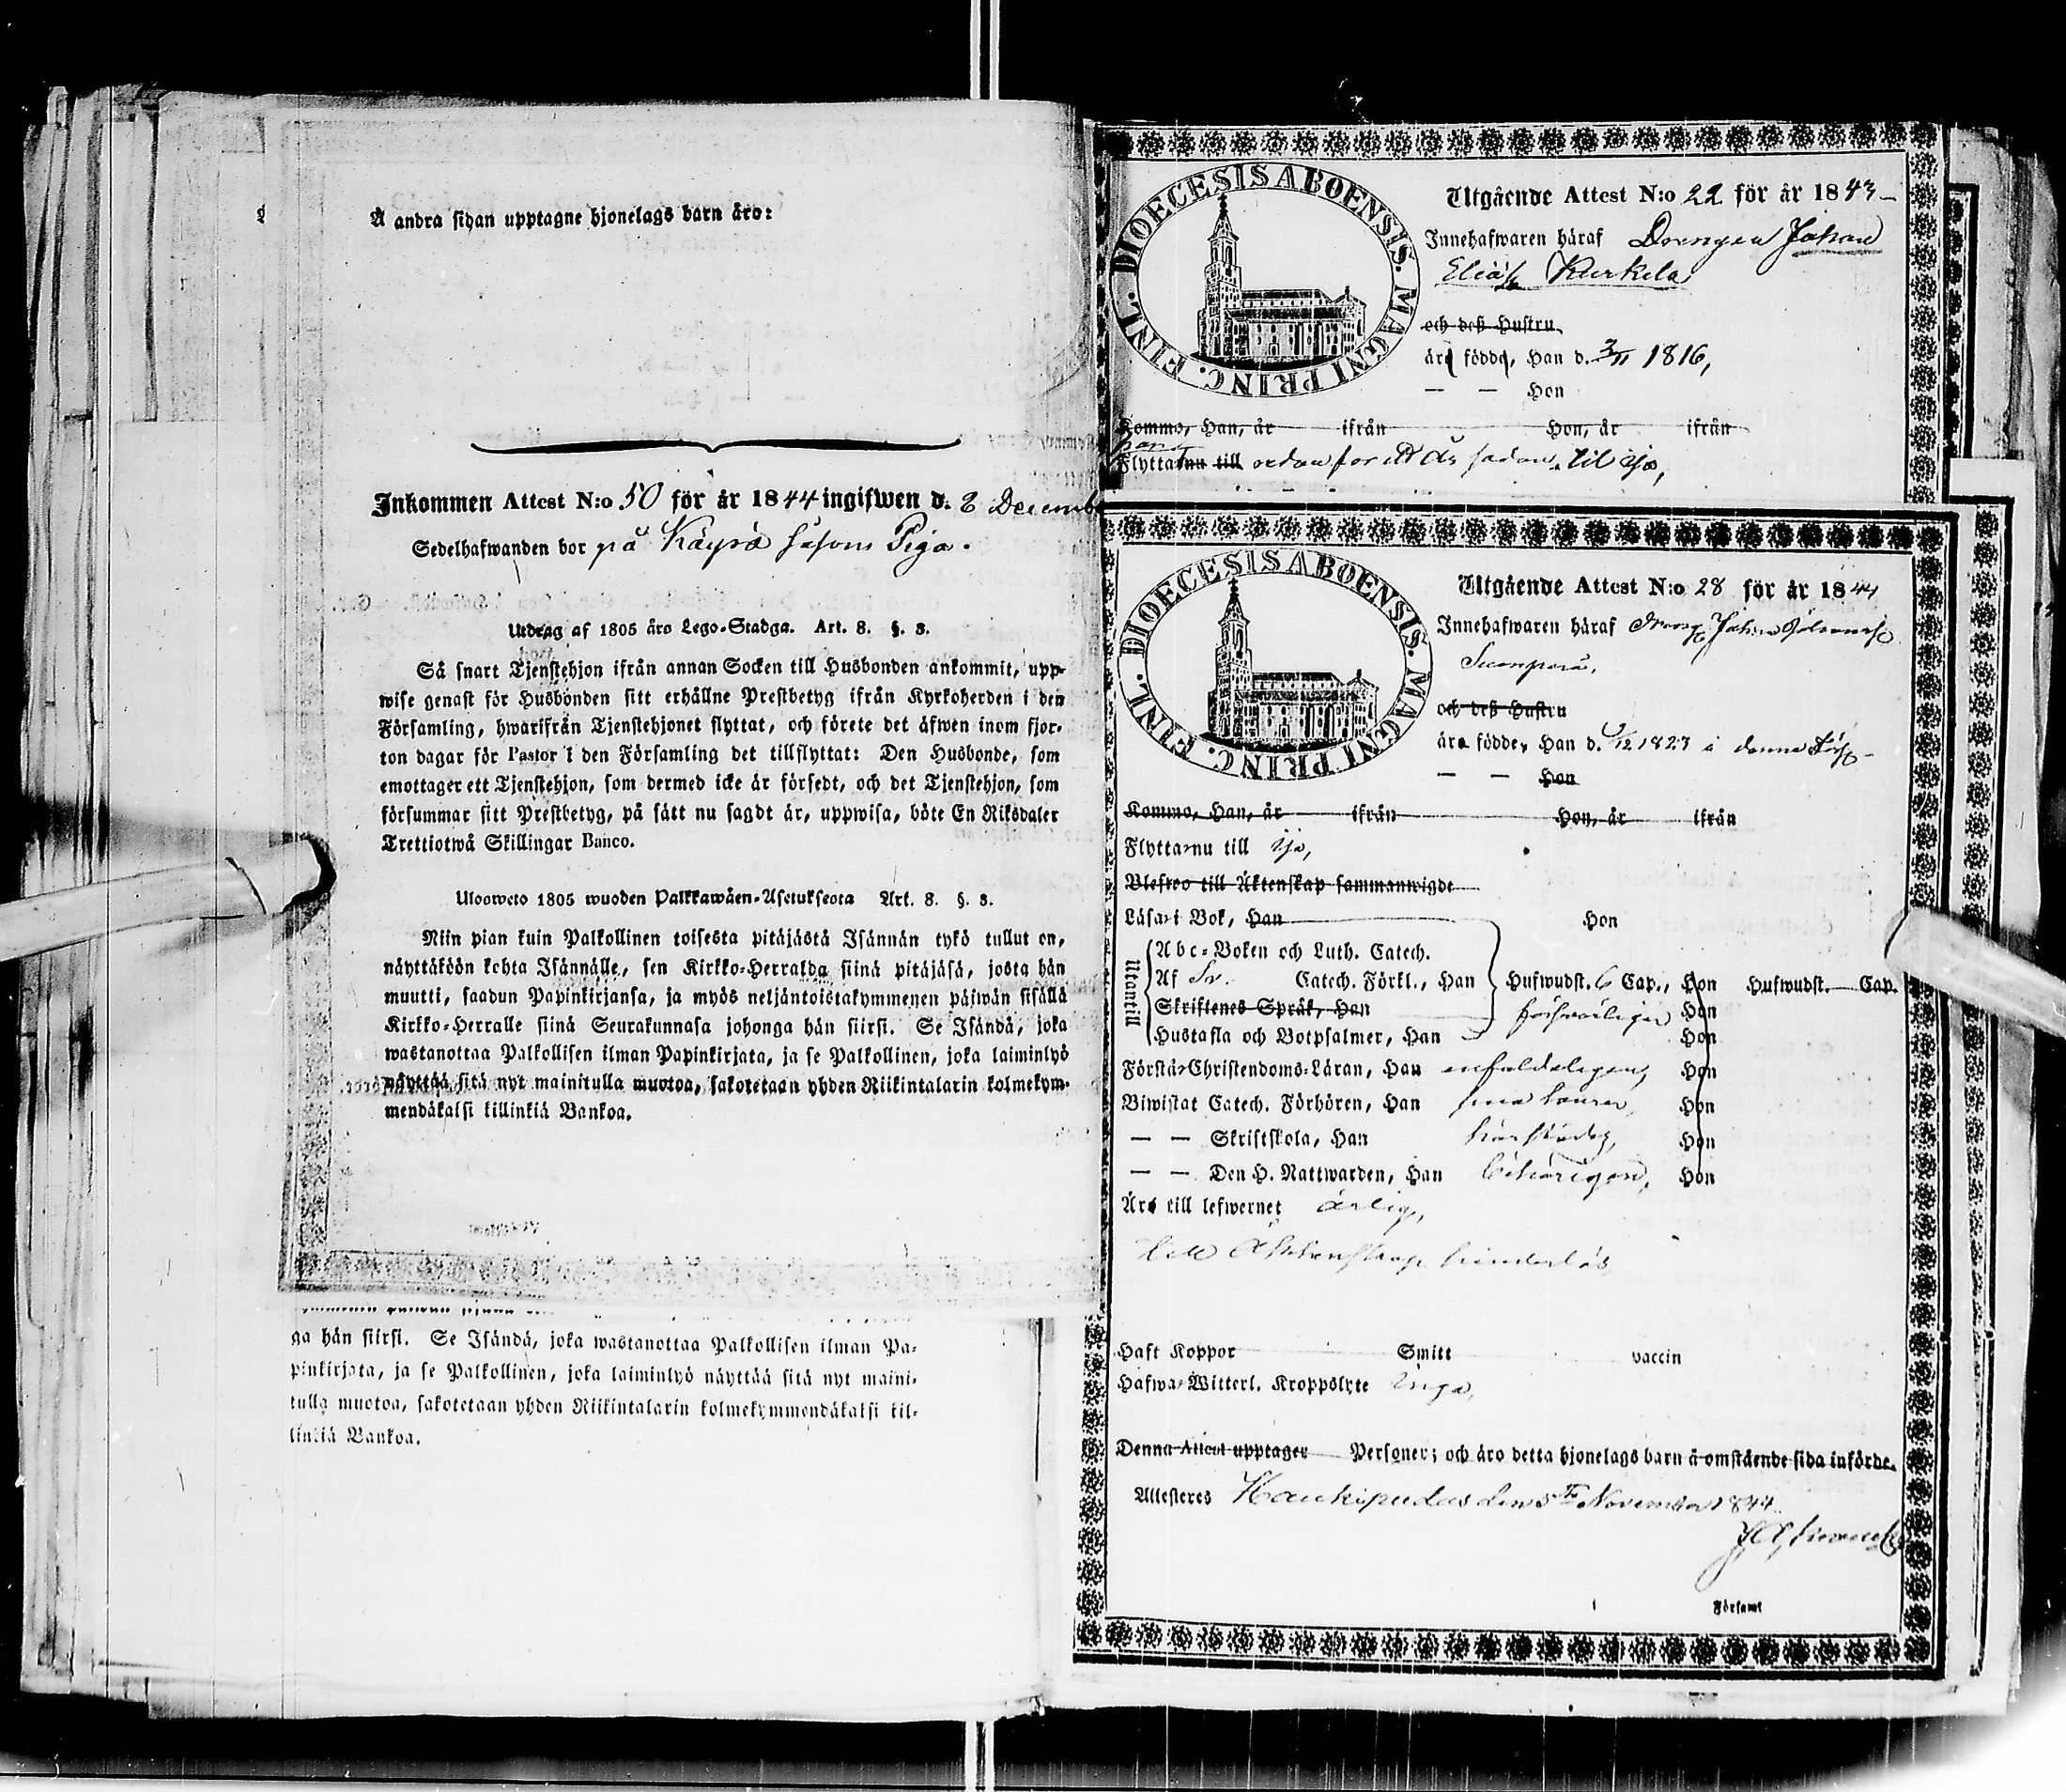 Å andra sidan upptagne hjonelags barn äro:
Inkommen Attest N:o 50 för år 1844 ingifwen d. 2 Decemb
Sedelhafwanden bor på Käyrä såsom Piga.
Utdrag af 1805 års Lego-Stadga. Art. 8. §. 3.
Så snart Tjenstehjon ifrån annan Socken till Husbonden ankommit, upp-
wise genast för Husbonden sitt erhållne Prestbetyg ifrån Kyrkoherden i den
Församling, hwarifrån Tjenstehjonet flyttat, och förete det äfwen inom fjor-
ton dagar för Pastor i den Församling det tillflyttat: Den Husbonde, som
emottager ett Tjenstehjon, som dermed icke är försedt, och det Tjenstehjon, som
försummar sitt Prestbetyg, på sätt nu sagdt är, uppwisa, böte En Riksdaler
Trettiotwå Skillingar Banco.
Uloosweto 1805 wuoden Palkkawäen-Asetuksesta Art. 8. §. 3.
Niin pian kuin Palkollinen toisesta pitäjästä Isännän tykö tullut on,
näyttäköön kohta Isännälle, sen Kirkko-Herralda siinä pitäjäsä, josta hän
muutti, saadun Papinkirjansa, ja myös neljäntoistakymmenen päiwän sisällä
Kirkko-Herralle siinä Seurakunnasa johonga hän siirsi. Se Isändä, joka
wastanottaa Palkollisen ilman Papinkirjata, ja se Palkollinen, joka laiminlyö
näyttää sitä nyt mainitulla muotoa, sakotetaan yhden Riikintalarin kolmekym-
mendäkaksi killinkiä Bankoa.
ga hän siirsi. Se Isändä, joka wastanottaa Palkollisen ilman Pa-
pinkirjata, ja se Palkollinen, joka laiminlyö näyttää sitä nyt maini-
tulla muotoa, sakotetaan yhden Riikintalarin kolmekymmendäkaksi kil-
linkiä Bankoa.
DIOECESIS ABOENSIS. MAGNI PRINC. FINL.
Utgående Attest N:o 22 för år 1843
Innehafwaren häraf Drengen Johan
Eliass Kurkela
och deß Hustru
äro födde, Han d. 3/11 1816,
— — Hon
Komme, Han, år ifrån Hon, år ifrån
Flytta nu till redan för ett år sedan til Ijo,
DIOECESIS ABOENSIS. MAGNI PRINC. FINL.
Utgående Attest N:o 28 för år 1844
Innehafwaren häraf Dreng Johan
och deß Hustru
äro födde, Han d. 1823 i denna Förs
— — Hon
Komme, Han, år ifrån Hon, år ifrån
Flytta nu till Ijo,
Blefwo till Äktenskap sammanwigde
Läsa i Bok, Han Hon
Utantill
Abc-Boken och Luth. Catech.
Af Sv. Catech. Förkl., Han Hufwudst. 6 Cap., Hon Hufwudst. Cap.
Skriftenes Språk, Han försvarligen Hon
Hustafla och Botpsalmer, Han Hon
Förstår Christendoms-Läran, Han enfaldeligen, Hon
Biwistat Catech. Förhören, Han Hon
— — Skriftskola, Han Hon
— — Den H. Nattwarden, Han behörigen, Hon
Äro till lefwernet ärlig,
till Äktenskap hinderlös
Haft Koppor Smitt vaccin
Hafwa Witterl. Kroppslyte inga,
Denna Attest upptager Personer; och äro detta hjonelags barn å omstående sida införde.
Attesteres Haukipudas den 5te November 1844
Församl